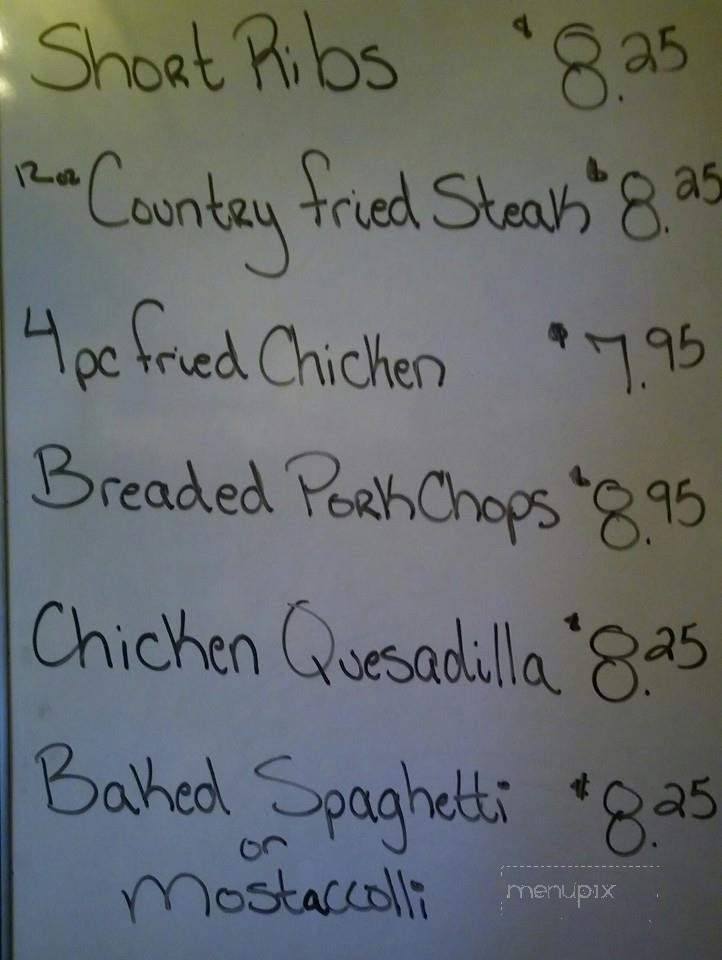 Short Ribs $8.25
12oz Country fried Steak $8.25
4pc fried Chicken $7.95
Breaded Pork Chops $8.95
Chicken Quesadilla $8.25
Baked Spaghetti $8.25
or
Mostaccolli
menupix